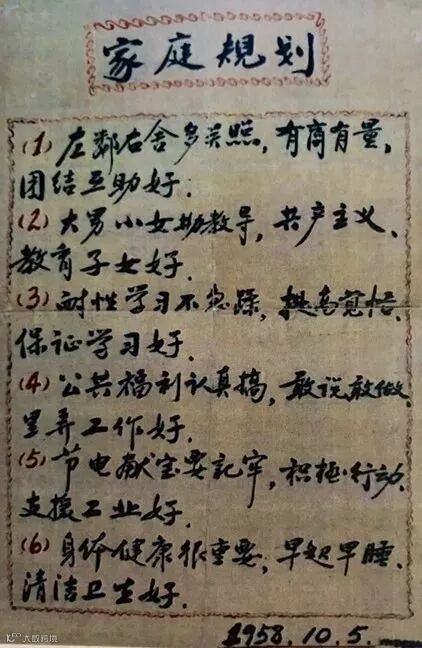 家庭規划
(1) 左鄰右舍多关照，有商有量，
团结互助好．
(2) 大男小女勤教导，共产主义、
教育子女好．
(3) 耐性学习不急躁，提高覚悟、
保证学习好．
(4) 公共福利认真搞，敢说敢做、
里弄工作好．
(5) 节电献宝要記牢，积极行动、
支援工业好．
(6) 身体健康很重要，早起早睡、
清洁卫生好．
1958.10.5.
大数跨境